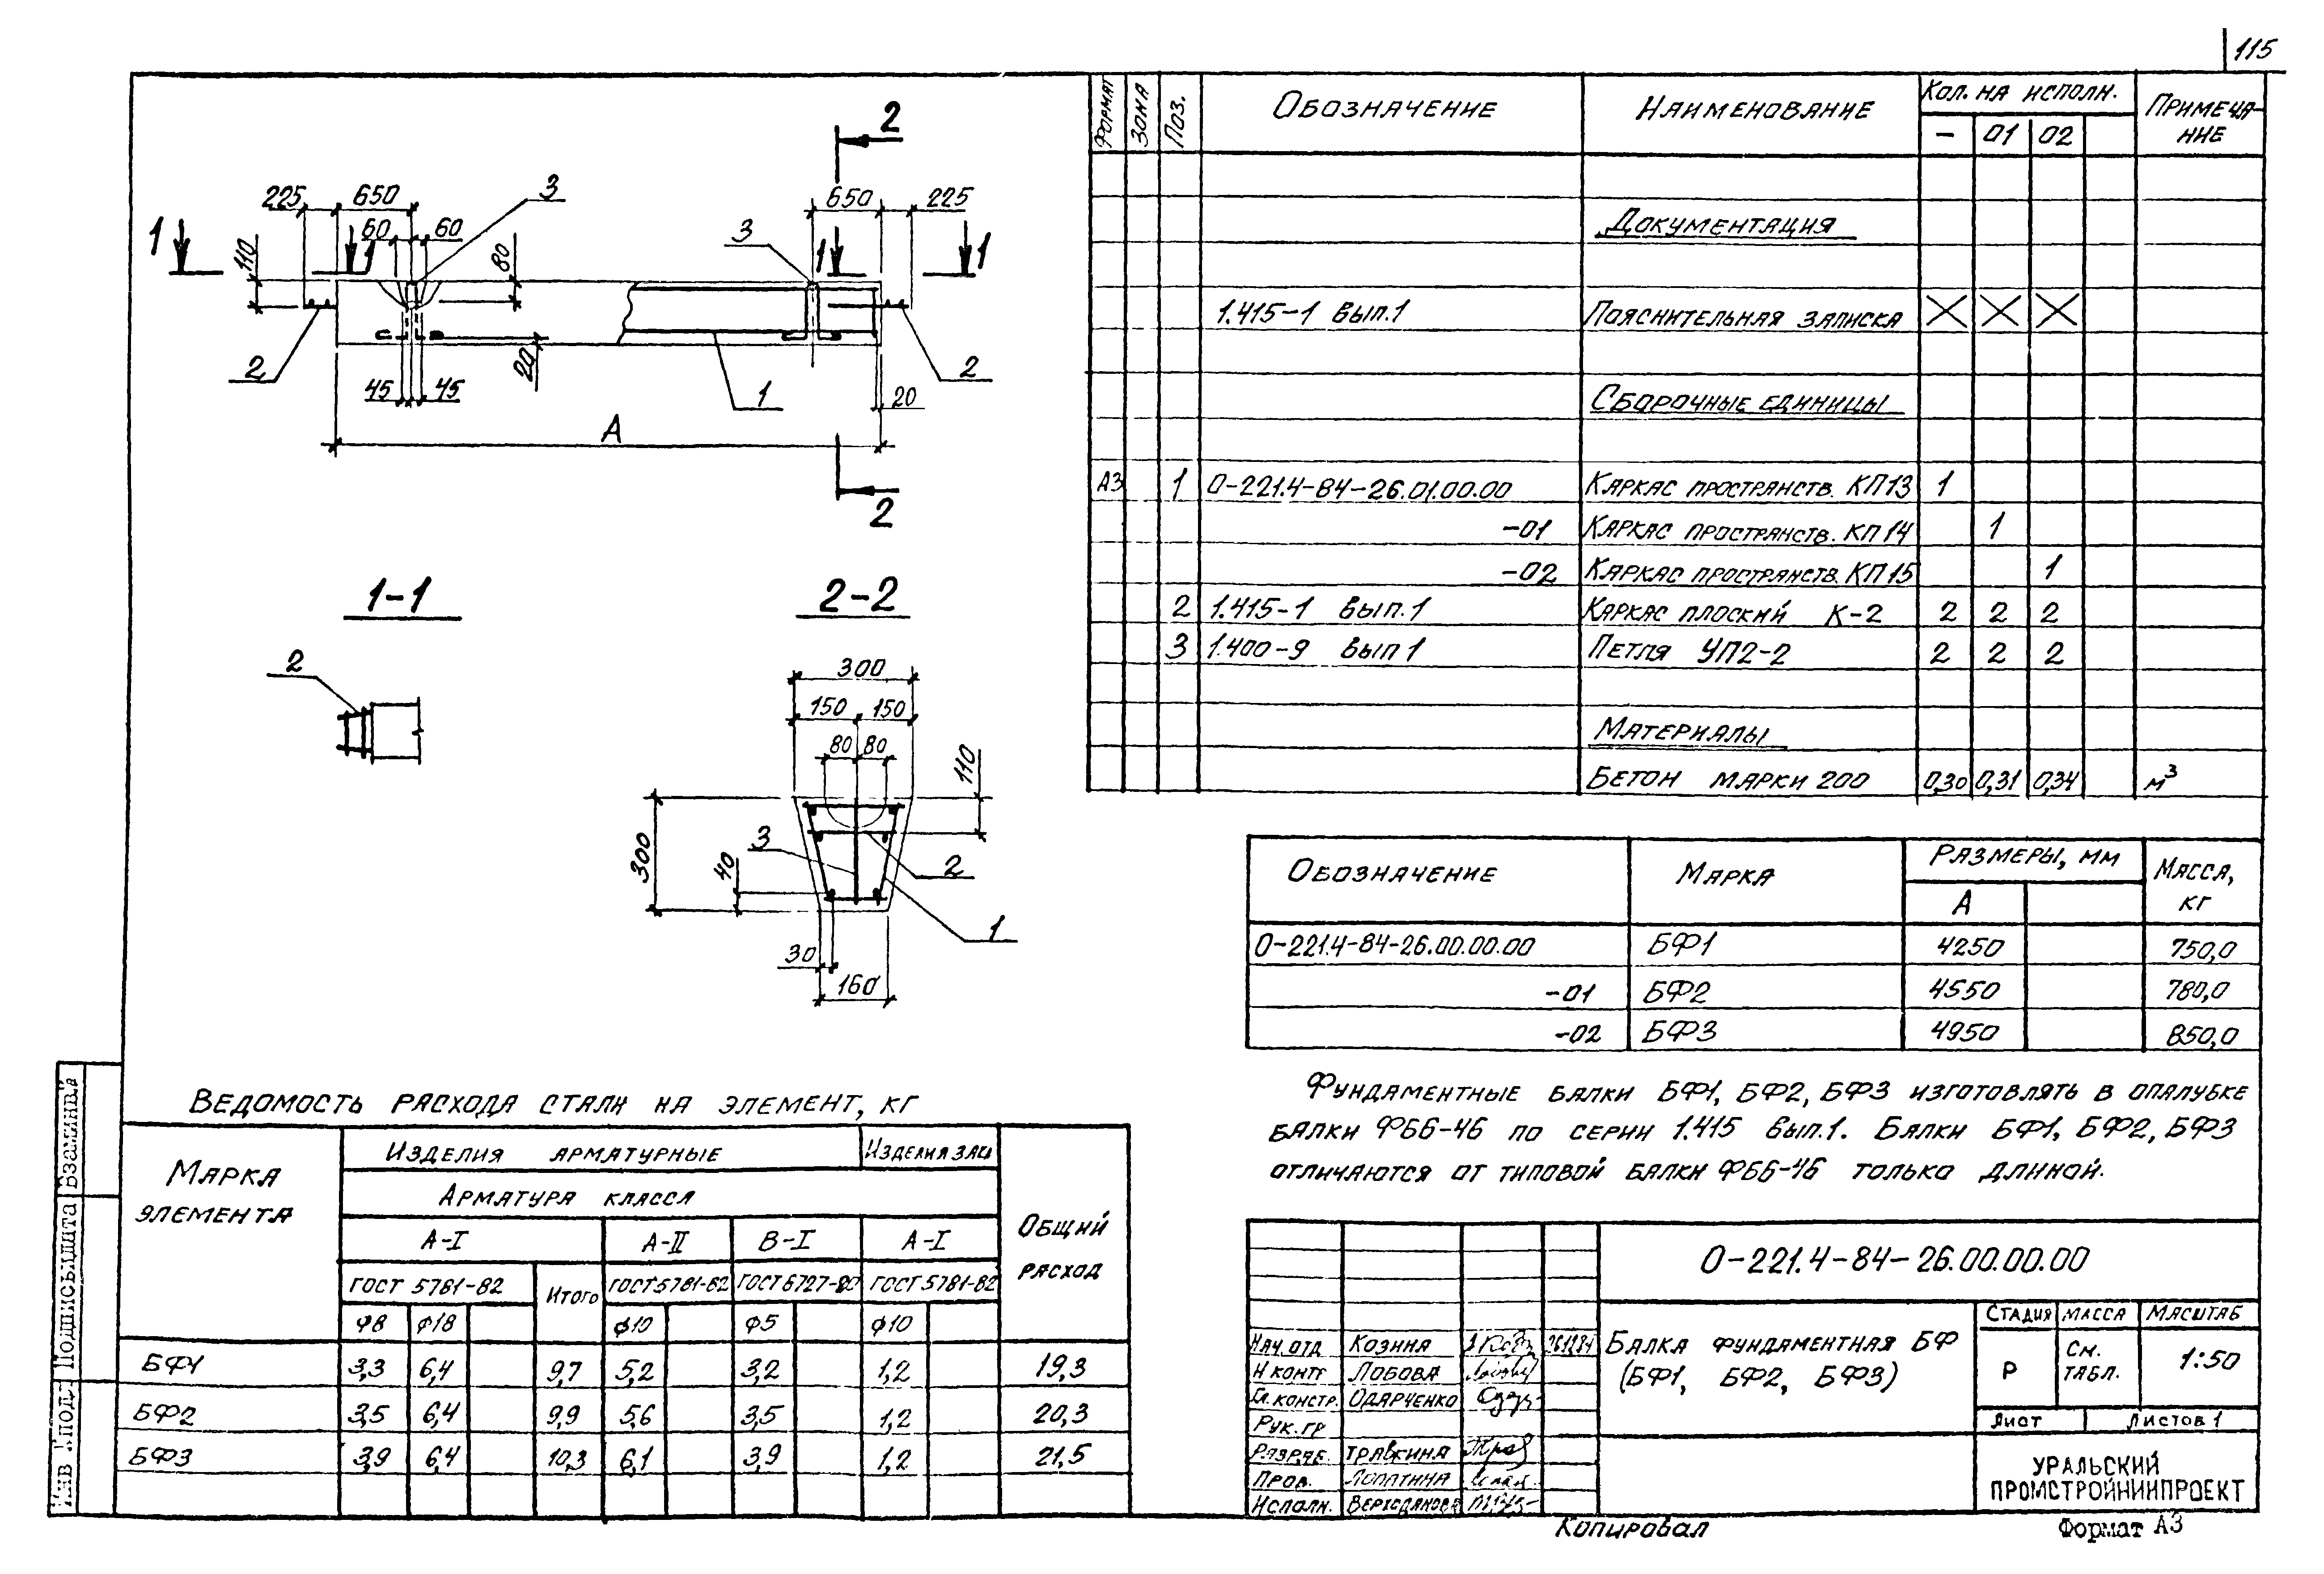 115
2
225 650 3 650 225
1 60 60 3 1 1
110 1 80
2 20 2
45 45 1 20
А
2
1-1 2-2
2 300
150 150
80 80
110
300 3 2
40
1
30
160
Формат Зона Поз. Обозначение Наименование Кол. на исполн. Примеча-
ние
- 01 02
Документация
1.415-1 Вып.1 Пояснительная записка
Сборочные единицы
А3 1 0-221.4-84-26.01.00.00 Каркас пространств. КП13 1
-01 Каркас пространств. КП14 1
-02 Каркас пространств. КП15 1
2 1.415-1 Вып.1 Каркас плоский К-2 2 2 2
3 1.400-9 Вып 1 Петля УП2-2 2 2 2
Материалы
Бетон марки 200 0,30 0,31 0,34 м³
Обозначение Марка Размеры, мм Масса,
кг
А
0-221.4-84-26.00.00.00 БФ1 4250 750,0
-01 БФ2 4550 780,0
-02 БФ3 4950 850,0
Фундаментные балки БФ1, БФ2, БФ3 изготовлять в опалубке
балки ФБ6-46 по серии 1.415 Вып.1. Балки БФ1, БФ2, БФ3
отличаются от типовой балки ФБ6-46 только длиной.
Ведомость расхода стали на элемент, кг
Марка
элемента
Изделия арматурные Изделия закл
Общий
расход
Арматура класса
А-I А-II В-I А-I
ГОСТ 5781-82 Итого ГОСТ 5781-82 ГОСТ 6727-80 ГОСТ 5781-82
Φ8 Φ18 Φ10 Φ5 Φ10
БФ1 3,3 6,4 9,7 5,2 3,2 1,2 19,3
БФ2 3,5 6,4 9,9 5,6 3,5 1,2 20,3
БФ3 3,9 6,4 10,3 6,1 3,9 1,2 21,5
0-221.4-84-26.00.00.00
Балка фундаментная БФ
(БФ1, БФ2, БФ3)
Стадия масса Масштаб
Р См.
табл. 1:50
Лист Листов 1
Уральский
Промстройниипроект
Нач. отд Козина
Н контр Лобова
Гл. констр. Одарченко
Рук. гр
Разраб. Травкина
Пров. Лопатина
Исполн.
Инв № подл Подпись и дата Взам инв №
Копировал Формат А3